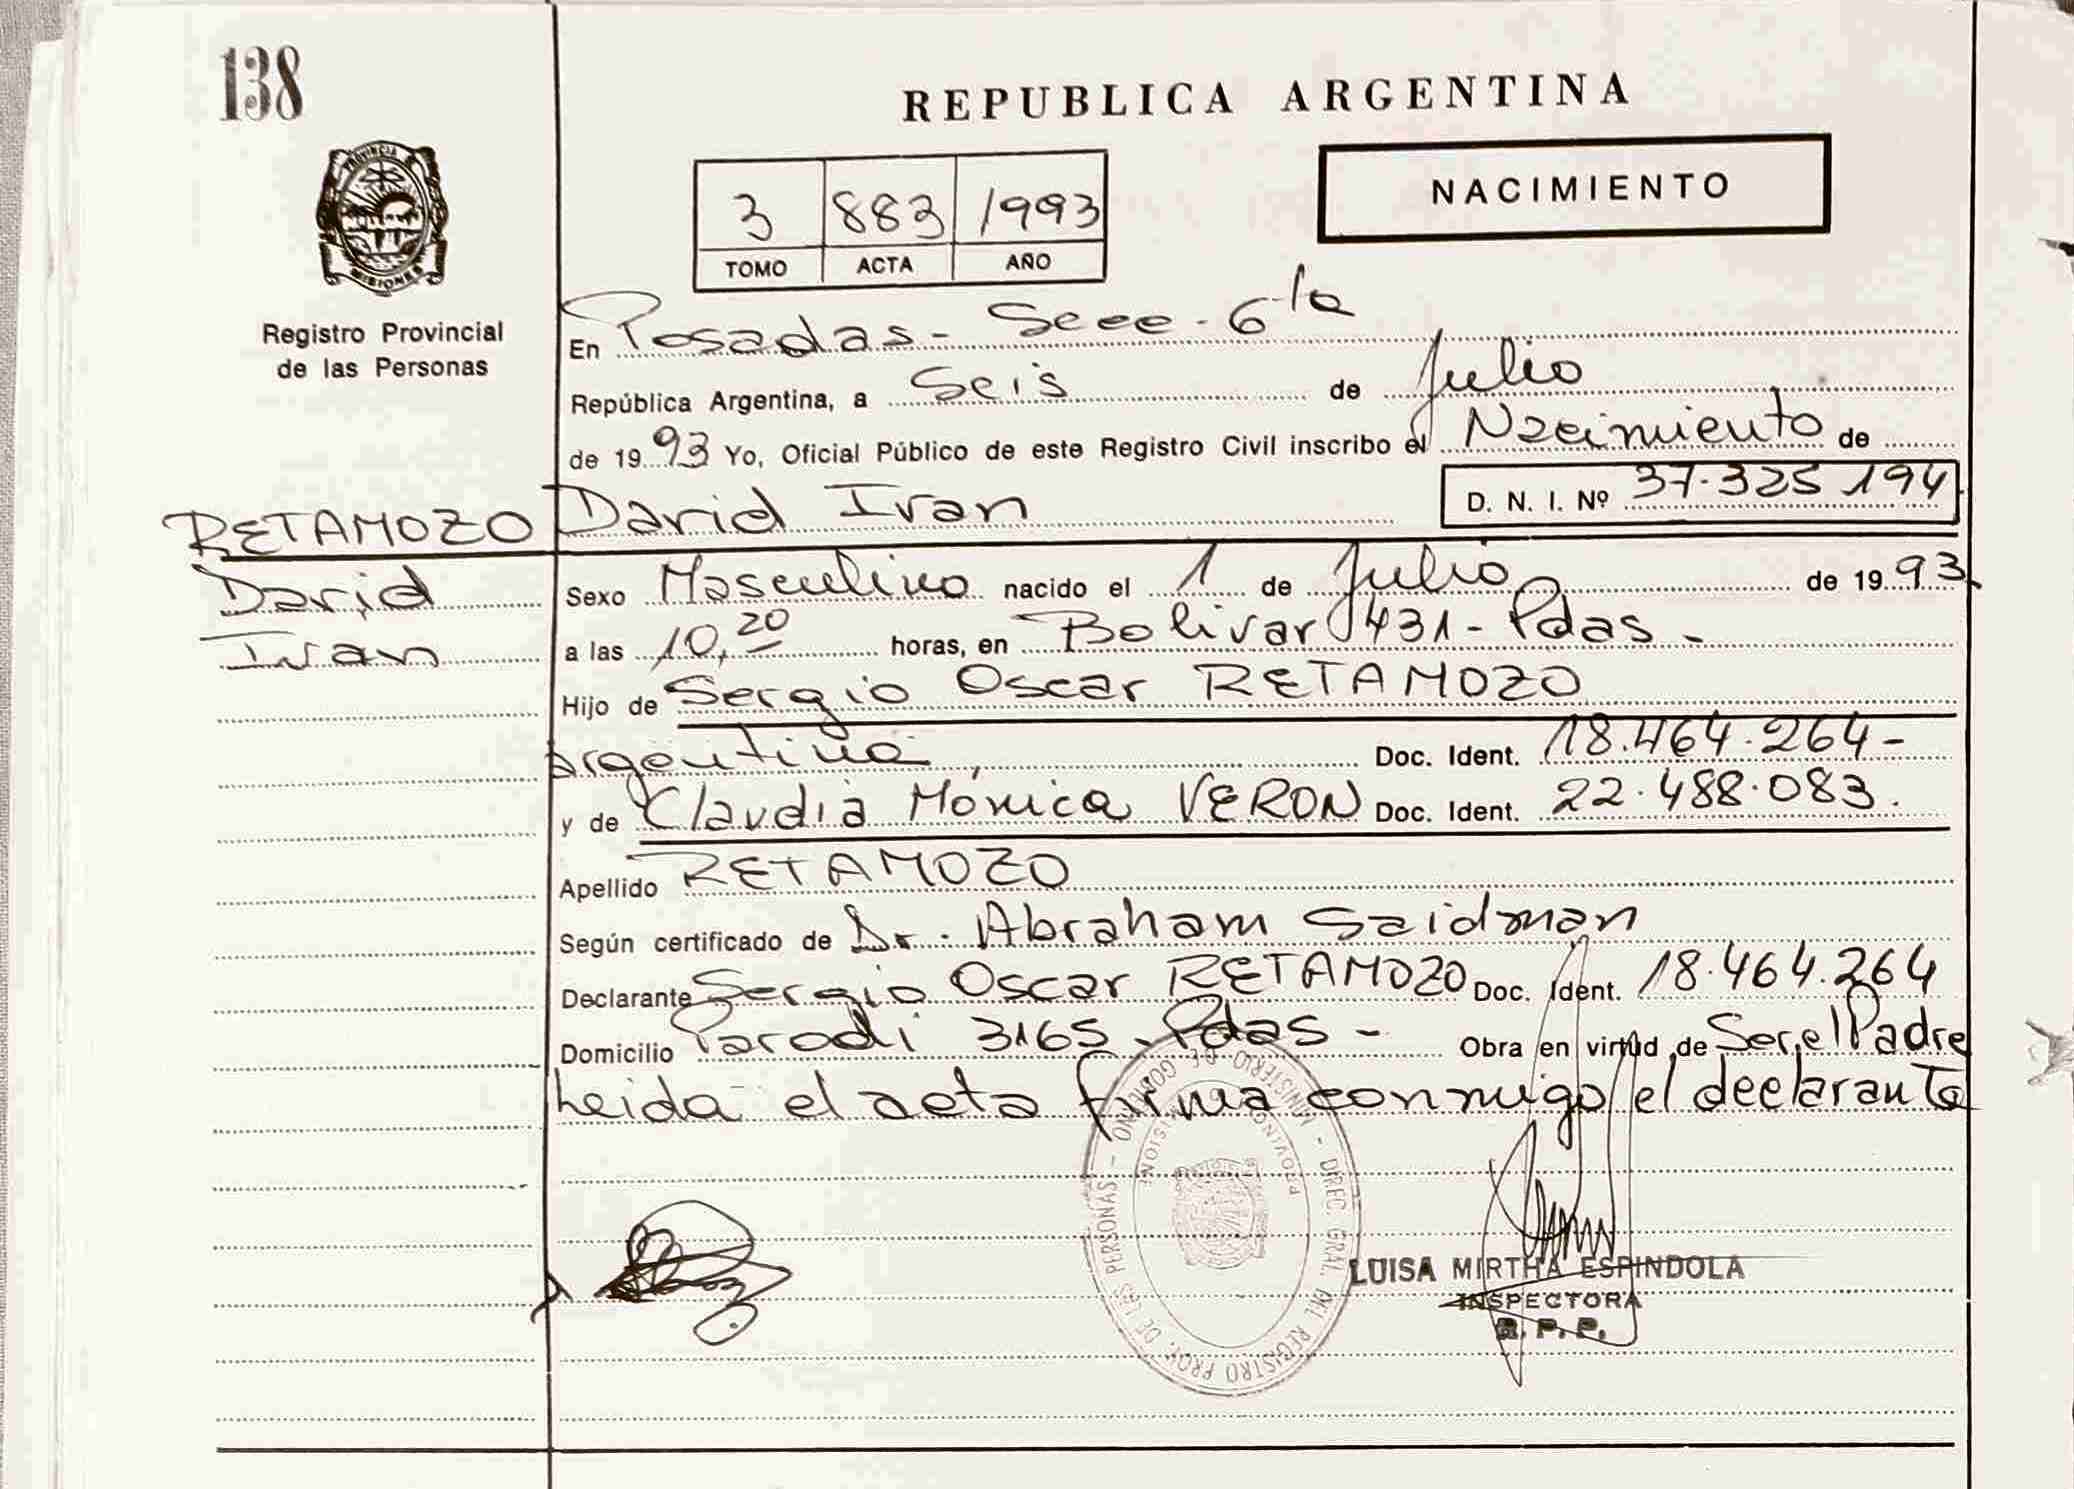 138
REPUBLICA ARGENTINA
PROVINCIA
MISIONES
Registro Provincial
de las Personas
3 883 1993
TOMO ACTA AÑO
NACIMIENTO
En Posadas - Secc - 6ta
República Argentina, a Seis de Julio
de 1993 Yo, Oficial Público de este Registro Civil inscribo el Nacimiento de
RETAMOZO David Ivan D. N. I. Nº 37.325 194
David
Ivan
Sexo Masculino nacido el 1 de Julio de 1993
a las 10,20 horas, en Bolivar 431 - Pdas -
Hijo de Sergio Oscar RETAMOZO
argentina, Doc. Ident. 18.464.264-
y de Claudia Mónica VERON Doc. Ident. 22.488.083.
Apellido RETAMOZO
Según certificado de Dr. Abraham Saidman
Declarante Sergio Oscar RETAMOZO Doc. Ident. 18.464.264
Domicilio Parodi 3165 - Pdas - Obra en virtud de Ser el Padre
Leida el acta firma conmigo el declarante
MINISTERIO DE GOBIERNO - DIREC. GRAL. DEL REGISTRO PROV. DE LAS PERSONAS -
PROVINCIA MISIONES
LUISA MIRTHA ESPINDOLA
INSPECTORA
R. P. P.